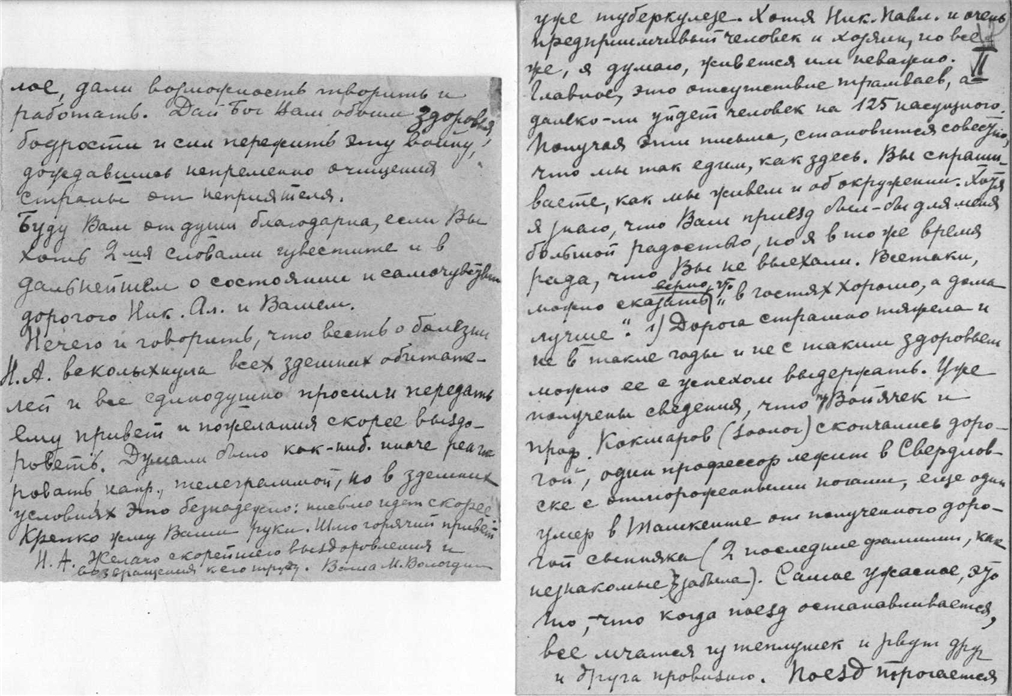 лое, дали возможность творить и
работать. Дай Бог Вам обоим здоровья,
бодрости и сил пережить эту войну,
дождавшись непременно очищения
страны от неприятеля.
Буду Вам от души благодарна, если Вы
хоть 2-мя словами известите и в
дальнейшем о состоянии и самочувствии
дорогого Ник. Ал. и Вашем.
Нечего и говорить, что весть о болезни
Н.А. всколыхнула всех здешних обитате-
лей и все единодушно просили передать
ему привет и пожелания скорее выздо-
роветь. Думали было как-ниб. иначе реаги-
ровать напр., телеграммой, но в здешних
условиях это безнадежно: письмо идет скорее
Крепко жму Ваши руки. Шлю горячий привет
Н.А. Желаю скорейшего выздоровления и
возвращения к его труду. Ваша М. Вологдин
уже туберкулезе. Хотя Ник. Павл. и очень
предприимчивый человек и хозяин, но все
же, я думаю, живется им неважно.
Главное, это отсутствие трамваев, а
далеко-ли уйдет человек на 125 насущного.
Получая эти письма, становится совестно,
что мы так едим, как здесь. Вы спраши-
ваете, как мы живем и об окружении. Хотя
я знаю, что Вам приезд был-бы для меня
большой радостью, но я в то же время
рада, что Вы не выехали. Всетаки,
верно, что
можно сказать, "в гостях хорошо, а дома
лучше". 1) Дорога страшно тяжела и
не в такие годы и не с таким здоровьем
можно ее с успехом выдержать. Уже
получены сведения, что Воячек и
проф. (зоолог) скончались доро-
гой, один профессор лежит в Свердлов-
ске с отмороженными ногами, еще один
умер в Ташкенте от полученного доро-
гой сыпняка (2 последние фамилии, как
незнакомые забыла). Самое ужасное, это
то, что когда поезд останавливается,
все мчатся из теплушек и рвут друг
у друга провизию. Поезд трогается